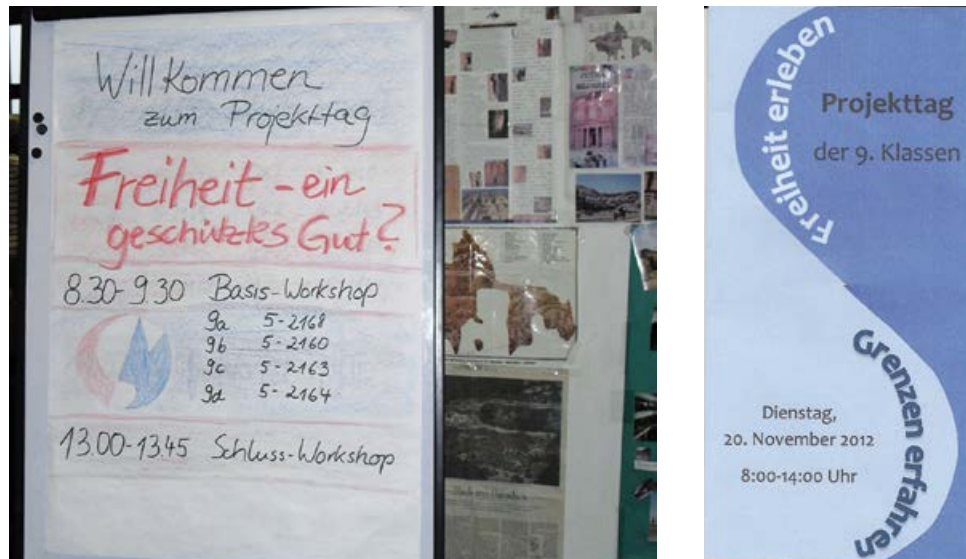 Willkommen
zum Projekttag
Freiheit - ein
geschütztes Gut?
8.30-9.30 Basis-Workshop
9a 5-2168
9b 5-2160
9c 5-2163
9d 5-2164
13.00-13.45 Schluss-Workshop
Freiheit erleben
Projekttag
der 9. Klassen
Grenzen erfahren
Dienstag,
20. November 2012
8:00-14:00 Uhr